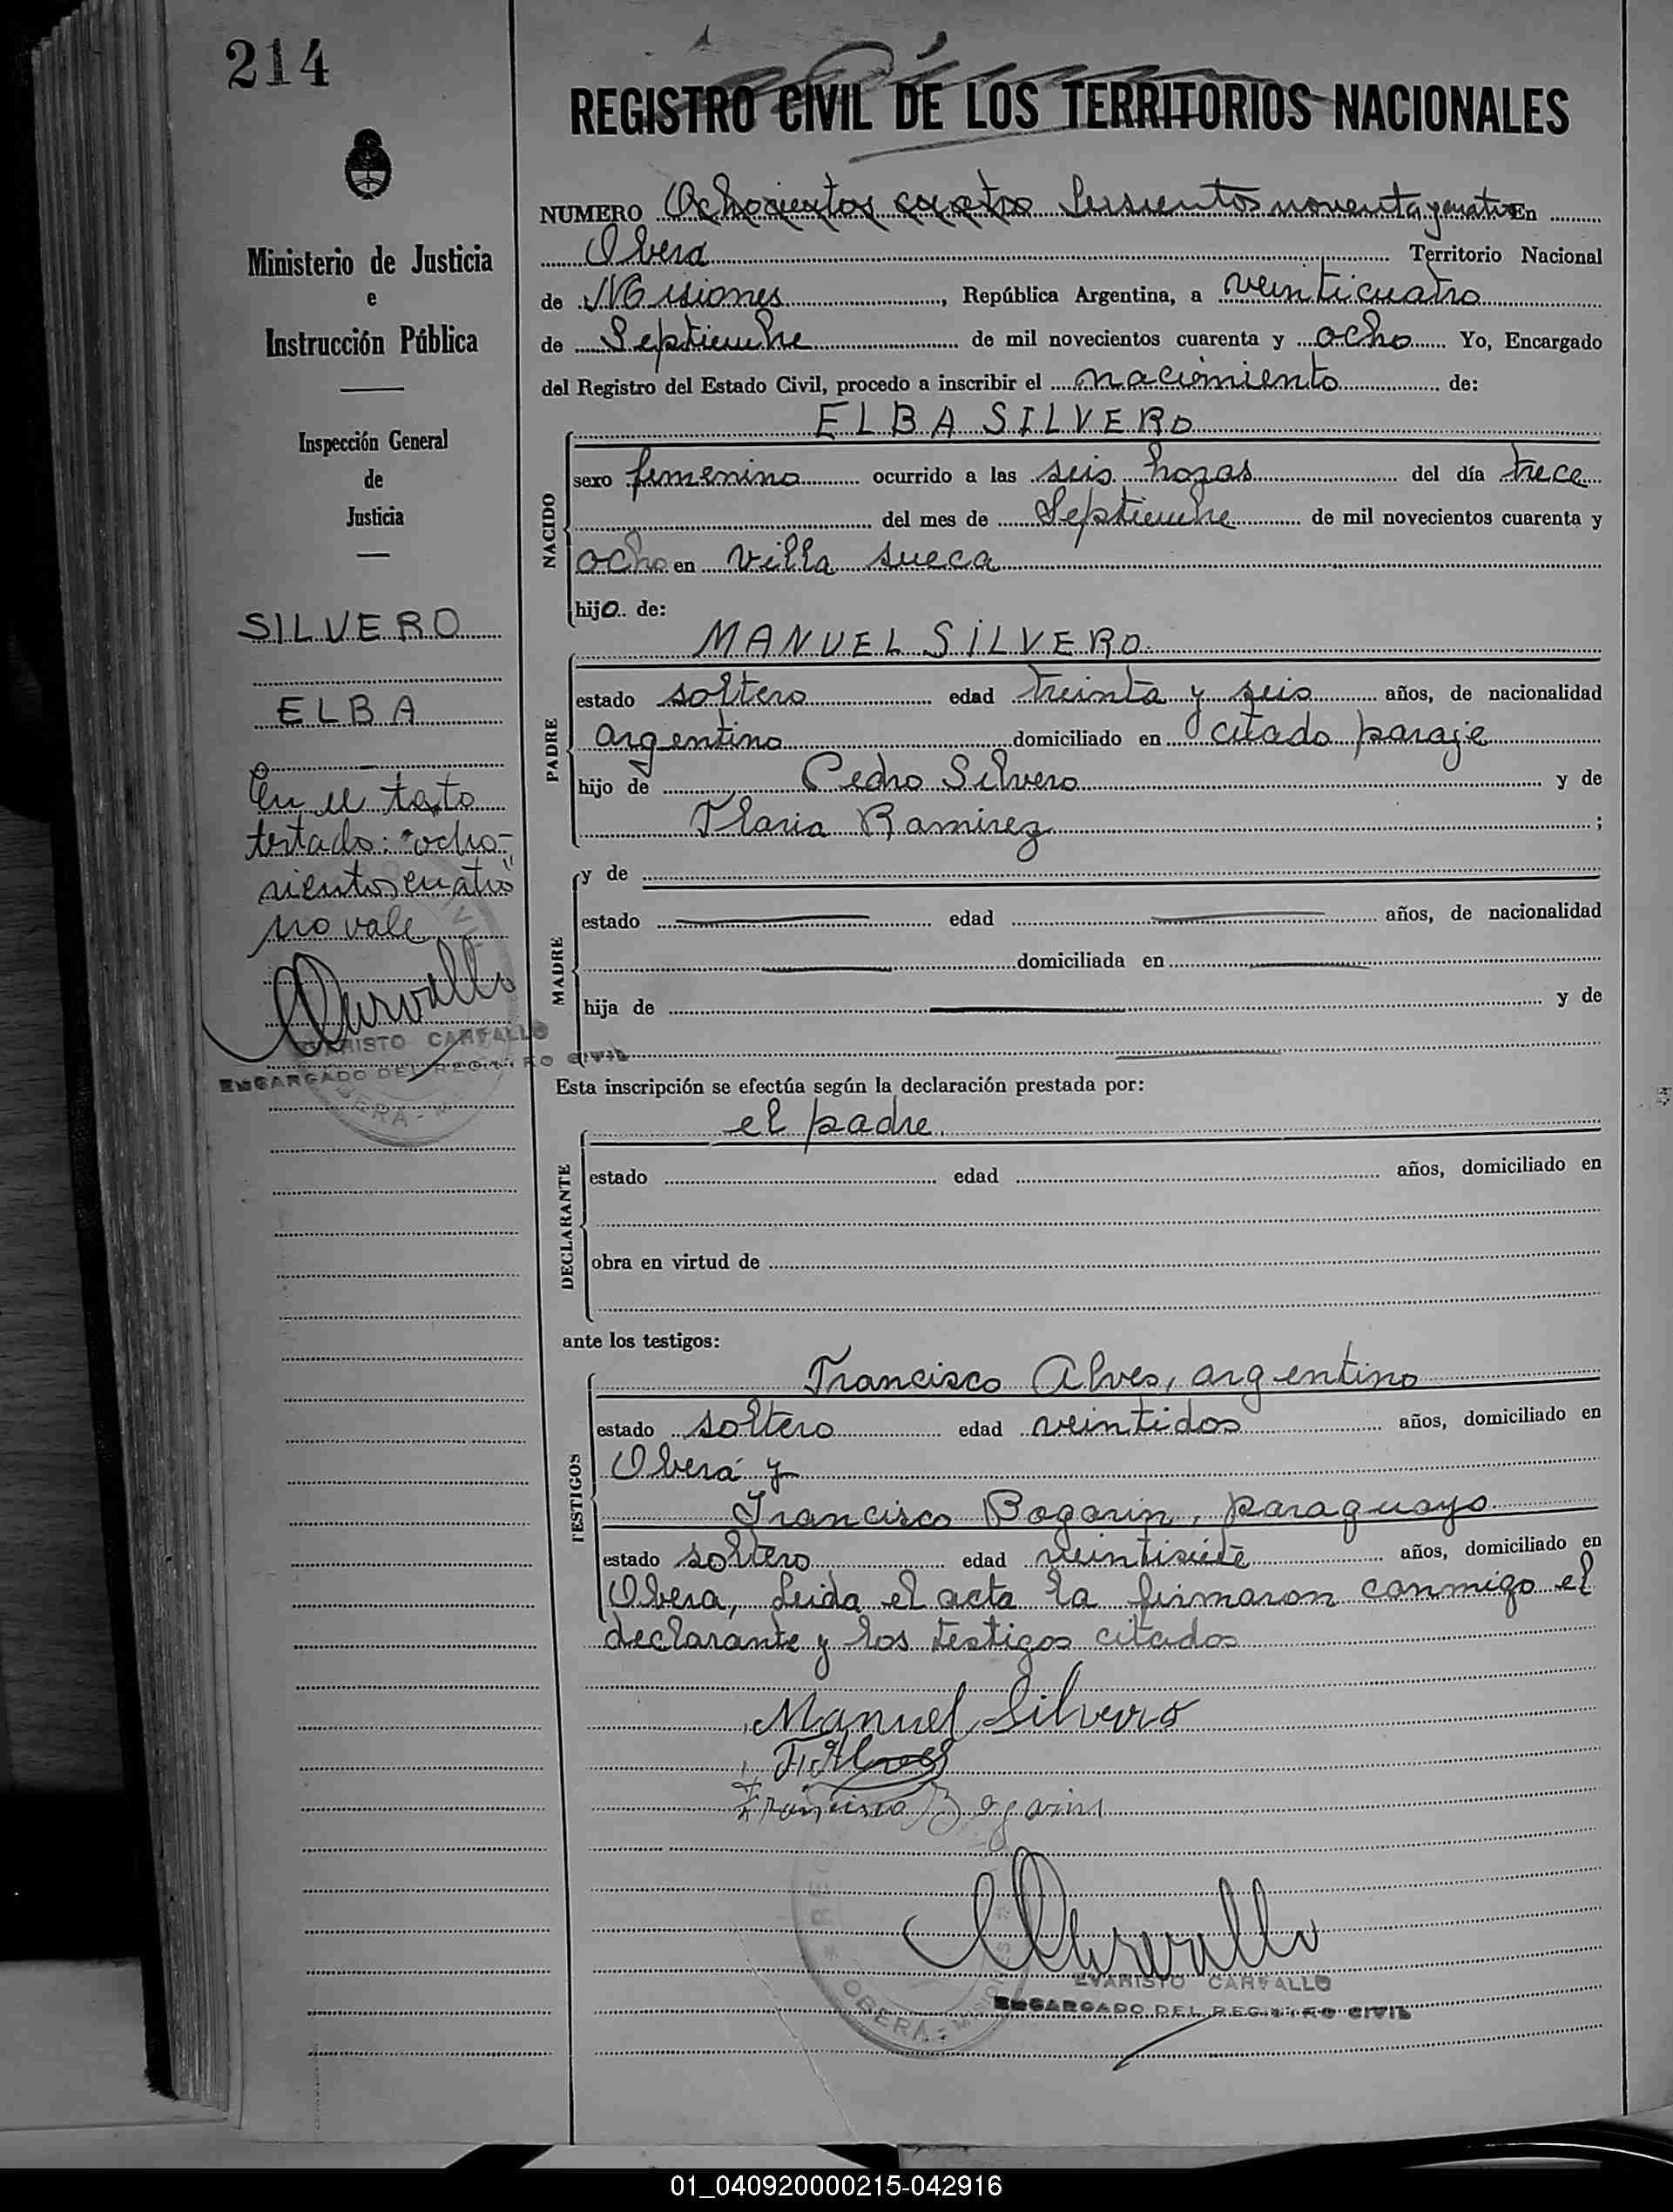 214
REGISTRO CIVIL DE LOS TERRITORIOS NACIONALES
NUMERO Ochocientos cuatro Seissientos noventa y cuatro En
Obera Territorio Nacional
de Misiones, República Argentina, a veinticuatro
de Septiembre de mil novecientos cuarenta y ocho Yo, Encargado
del Registro del Estado Civil, procedo a inscribir el nacimiento de:
Ministerio de Justicia
e
Instrucción Pública
Inspección General
de
Justicia
SILVERO
ELBA
En el texto
testado: "ocho-
cientos cuatro"
no vale
EVARISTO CARVALLO
ENCARGADO DEL REGISTRO CIVIL
OBERA - M
NACIDO
ELBA SILVERO
sexo femenino ocurrido a las seis horas del día trece
del mes de Septiembre de mil novecientos cuarenta y
ocho en villa sueca
hijo de:
PADRE
MANUEL SILVERO
estado soltero edad treinta y seis años, de nacionalidad
argentino domiciliado en citado paraje
hijo de Pedro Silvero y de
Ramirez ;
MADRE
y de
estado edad años, de nacionalidad
domiciliada en
hija de y de
Esta inscripción se efectúa según la declaración prestada por:
DECLARANTE
el padre.
estado edad años, domiciliado en
obra en virtud de
ante los testigos:
TESTIGOS
Francisco Alves, argentino
estado soltero edad veintidos años, domiciliado en
Oberá y
Francisco Bogarin, paraguayo
estado soltero edad veintisiete años, domiciliado en
Obera, Leida el acta la firmaron conmigo el
declarante y los testigos citados
Manuel Silvero
F. Alves
Francisco Bogarin
EVARISTO CARVALLO
ENCARGADO DEL REGISTRO CIVIL
OBERÁ - MISIONES
01_040920000215-042916